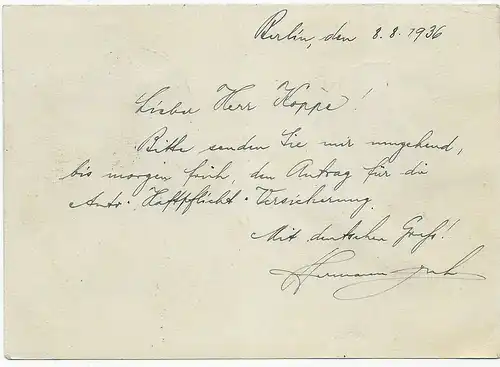 Berlin, den 8.8.1936
Lieber Herr Koppe!
Bitte senden Sie mir umgehend,
bis morgen früh, den Antrag für die
Auto-Haftpflicht-Versicherung.
Mit deutschen Gruß!
Hermann